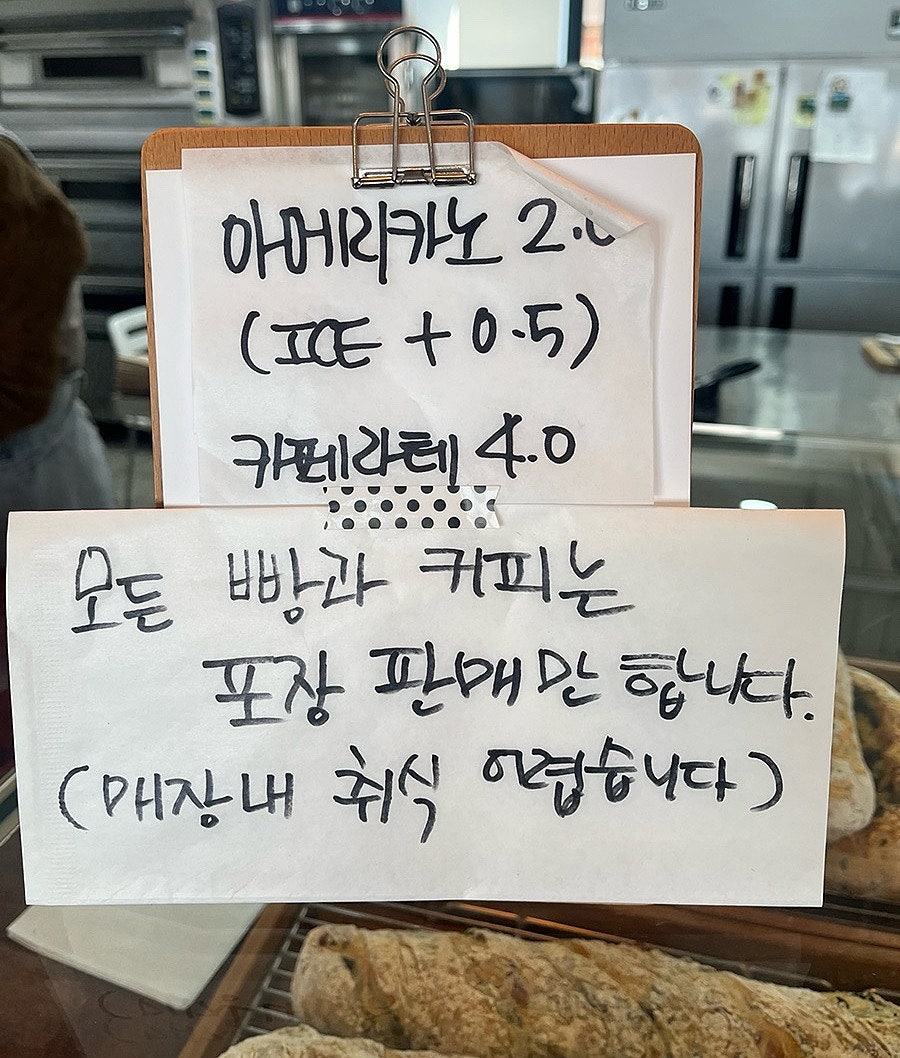 아메리카노 2.0
(ICE + 0.5)
카페라테 4.0
모든 빵과 커피는
포장 판매만 합니다.
(매장내 취식 어렵습니다)